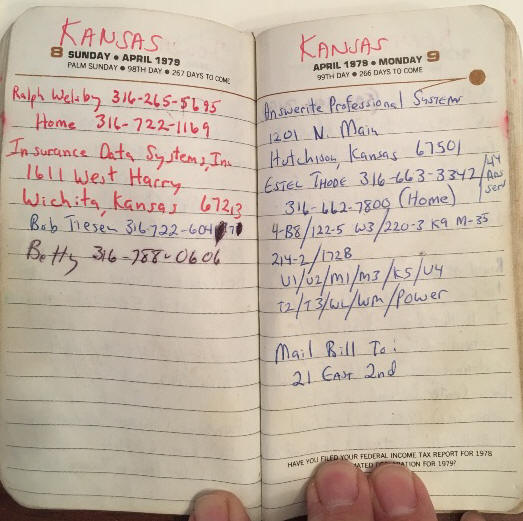 KANSAS
8 SUNDAY • APRIL 1979
PALM SUNDAY • 98TH DAY • 267 DAYS TO COME
Ralph Welsby 316-265-5695
Home 316-722-1169
Insurance Data Systems, Inc.
1611 West Harry
Wichita, Kansas 67213
Bob Tiesen 316-722-604
Betty 316-788-0606
KANSAS
APRIL 1979 • MONDAY 9
99TH DAY • 266 DAYS TO COME
Answerite Professional Systems
1201 N. Main
Hutchison, Kansas 67501
ESTEL THODE 316-663-3342 /44 Ans Serv
316-662-7800 (Home)
4-B8/122-5 W3/220-3 K9 M-35
214-2/172B
U1/U2/M1/M3/K5/U4
T2/T3/WL/WM/Power
Mail Bill To:
21 EAST 2nd
HAVE YOU FILED YOUR FEDERAL INCOME TAX REPORT FOR 1978
FOR 1979?